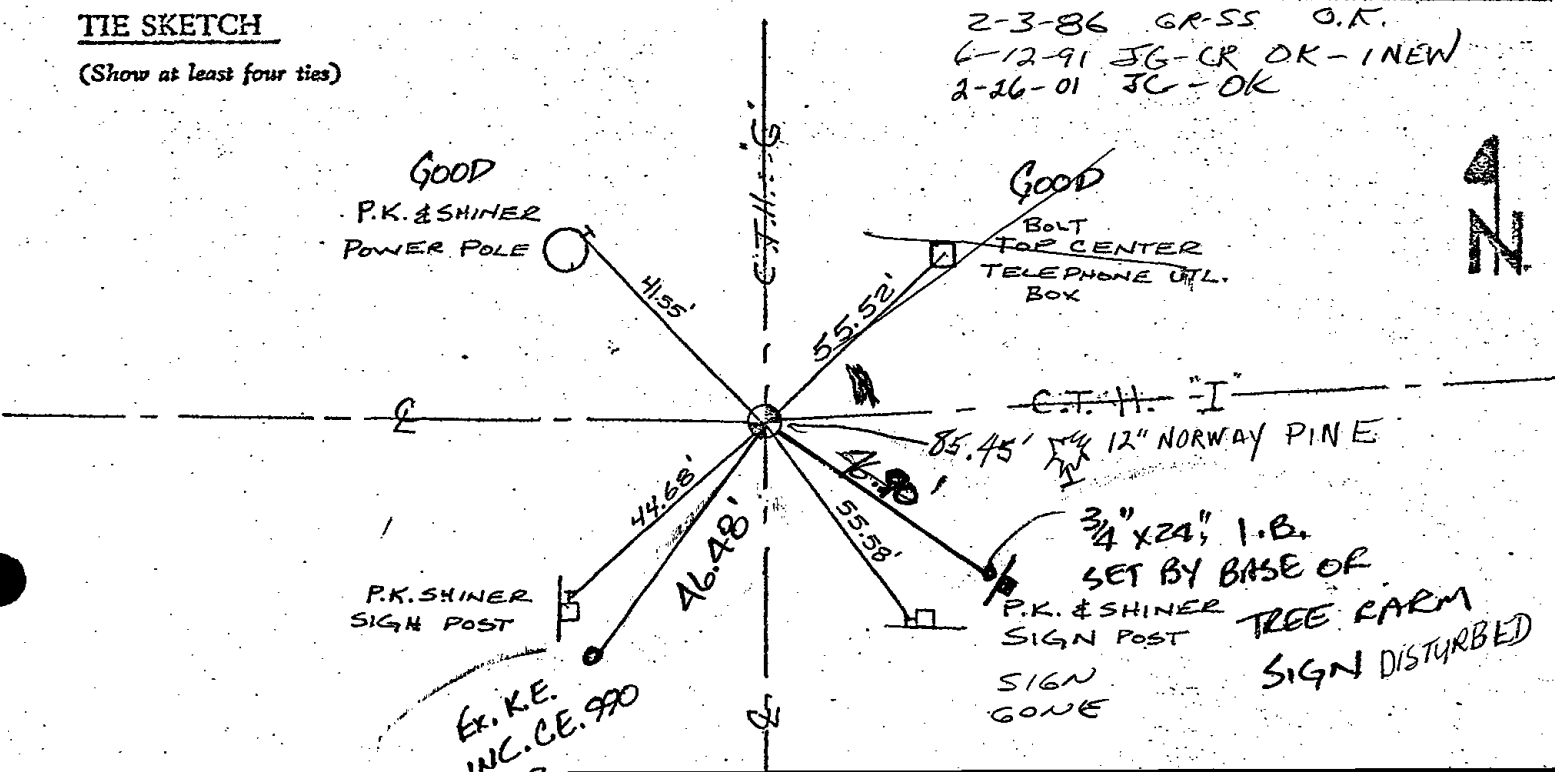 TIE SKETCH
(Show at least four ties)
2-3-86 GR-SS O.K.
6-12-91 JG-CR OK-1 NEW
2-26-01 JG-OK
C.T.H. "G"
GOOD
P.K. & SHINER
POWER POLE
GOOD
BOLT
TOP CENTER
TELEPHONE UTL.
BOX
N
41.55'
55.52'
C.T.H. "I"
℄
85.45' 12" NORWAY PINE
44.68'
46.48'
55.58'
3/4" x 24" I.B.
SET BY BASE OF
TREE FARM
SIGN DISTURBED
P.K. SHINER
SIGN POST
P.K. & SHINER
SIGN POST
SIGN
GONE
Ex. K.E.
INC. C.E. 990
℄